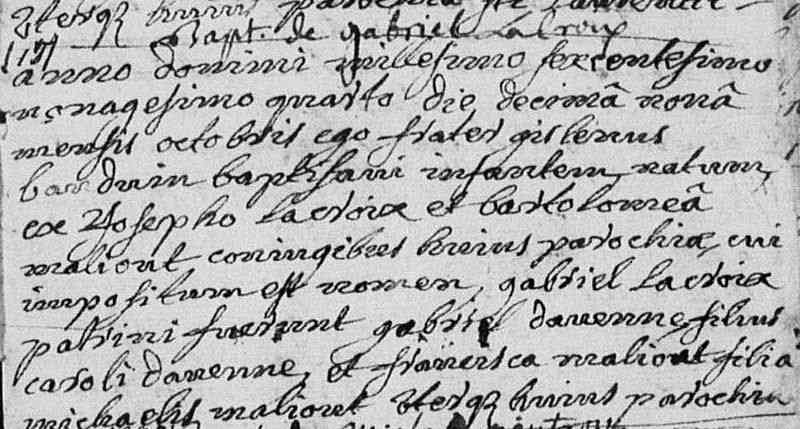 uterq huius parochia
Bapt. de gabriel Lacroix
anno domini milesimo sexcentesimo
nonagesimo quarto die decimâ nonâ
mensis octobris ego frater gislenus
bauduin baptisavi infantem natum
ex Josepho Lacroix et bartolomeâ
maliout coniugibus huius parochiæ cui
impositum est nomen gabriel Lacroix
patrini fuerunt gabriel davenne filius
caroli davenne, et francisca maliout filia
michaelis maliout uterq huius parochiæ